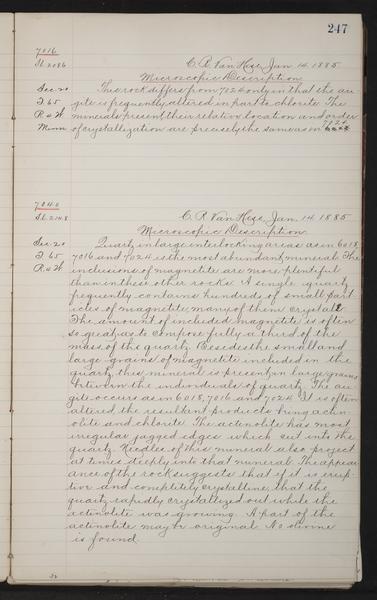 247
7016
Sl. 2086
C. R. Van Hise, Jan. 14. 1885
Microscopic Description
Sec. 20
T. 65
R. 2 W
Minn
This rock differs from 7024 only in that the au-
gite is frequently altered in part to chlorite. The
minerals present, their relative location and order
of crystallization are precisely the same as in 7024
7040
Sl. 2148
C. R. Van Hise, Jan. 14 1885
Microscopic Description.
Sec. 20
T. 65
R. 2 W
Quartz in large interlocking areas as in 6018,
7016 and 7024 is the most abundant mineral. The
inclusions of magnetite are more plentiful
than in these other rocks. A single quartz
frequently contains hundreds of small part
icles of magnetite many of them crystals.
The amount of included magnetite is often
so great as to compose fully one third of the
mass of the quartz. Besides the small and
large grains of magnetite included in the
quartz, this mineral is present in large grains
between the individuals of quartz. The au-
gite occurs as in 6018, 7016 and 7024. It is often
altered, the resultant products being actin-
olite and chlorite. The actinolite has most
irregular jagged edges which cut into the
quartz. Needles of this mineral also project
at times steeply into that mineral. The appear
ance of the rock suggests that if it is erup-
tive and completely crystalline, that the
quartz rapidly crystallized out while the
actinolite was growing. A part of the
actinolite may be original. No olivine
is found.